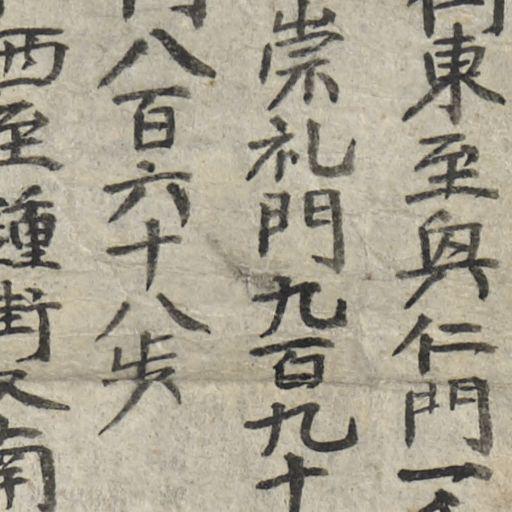 東至興仁門一
崇礼門九百九十
八百六十八步
西至鍾街又南